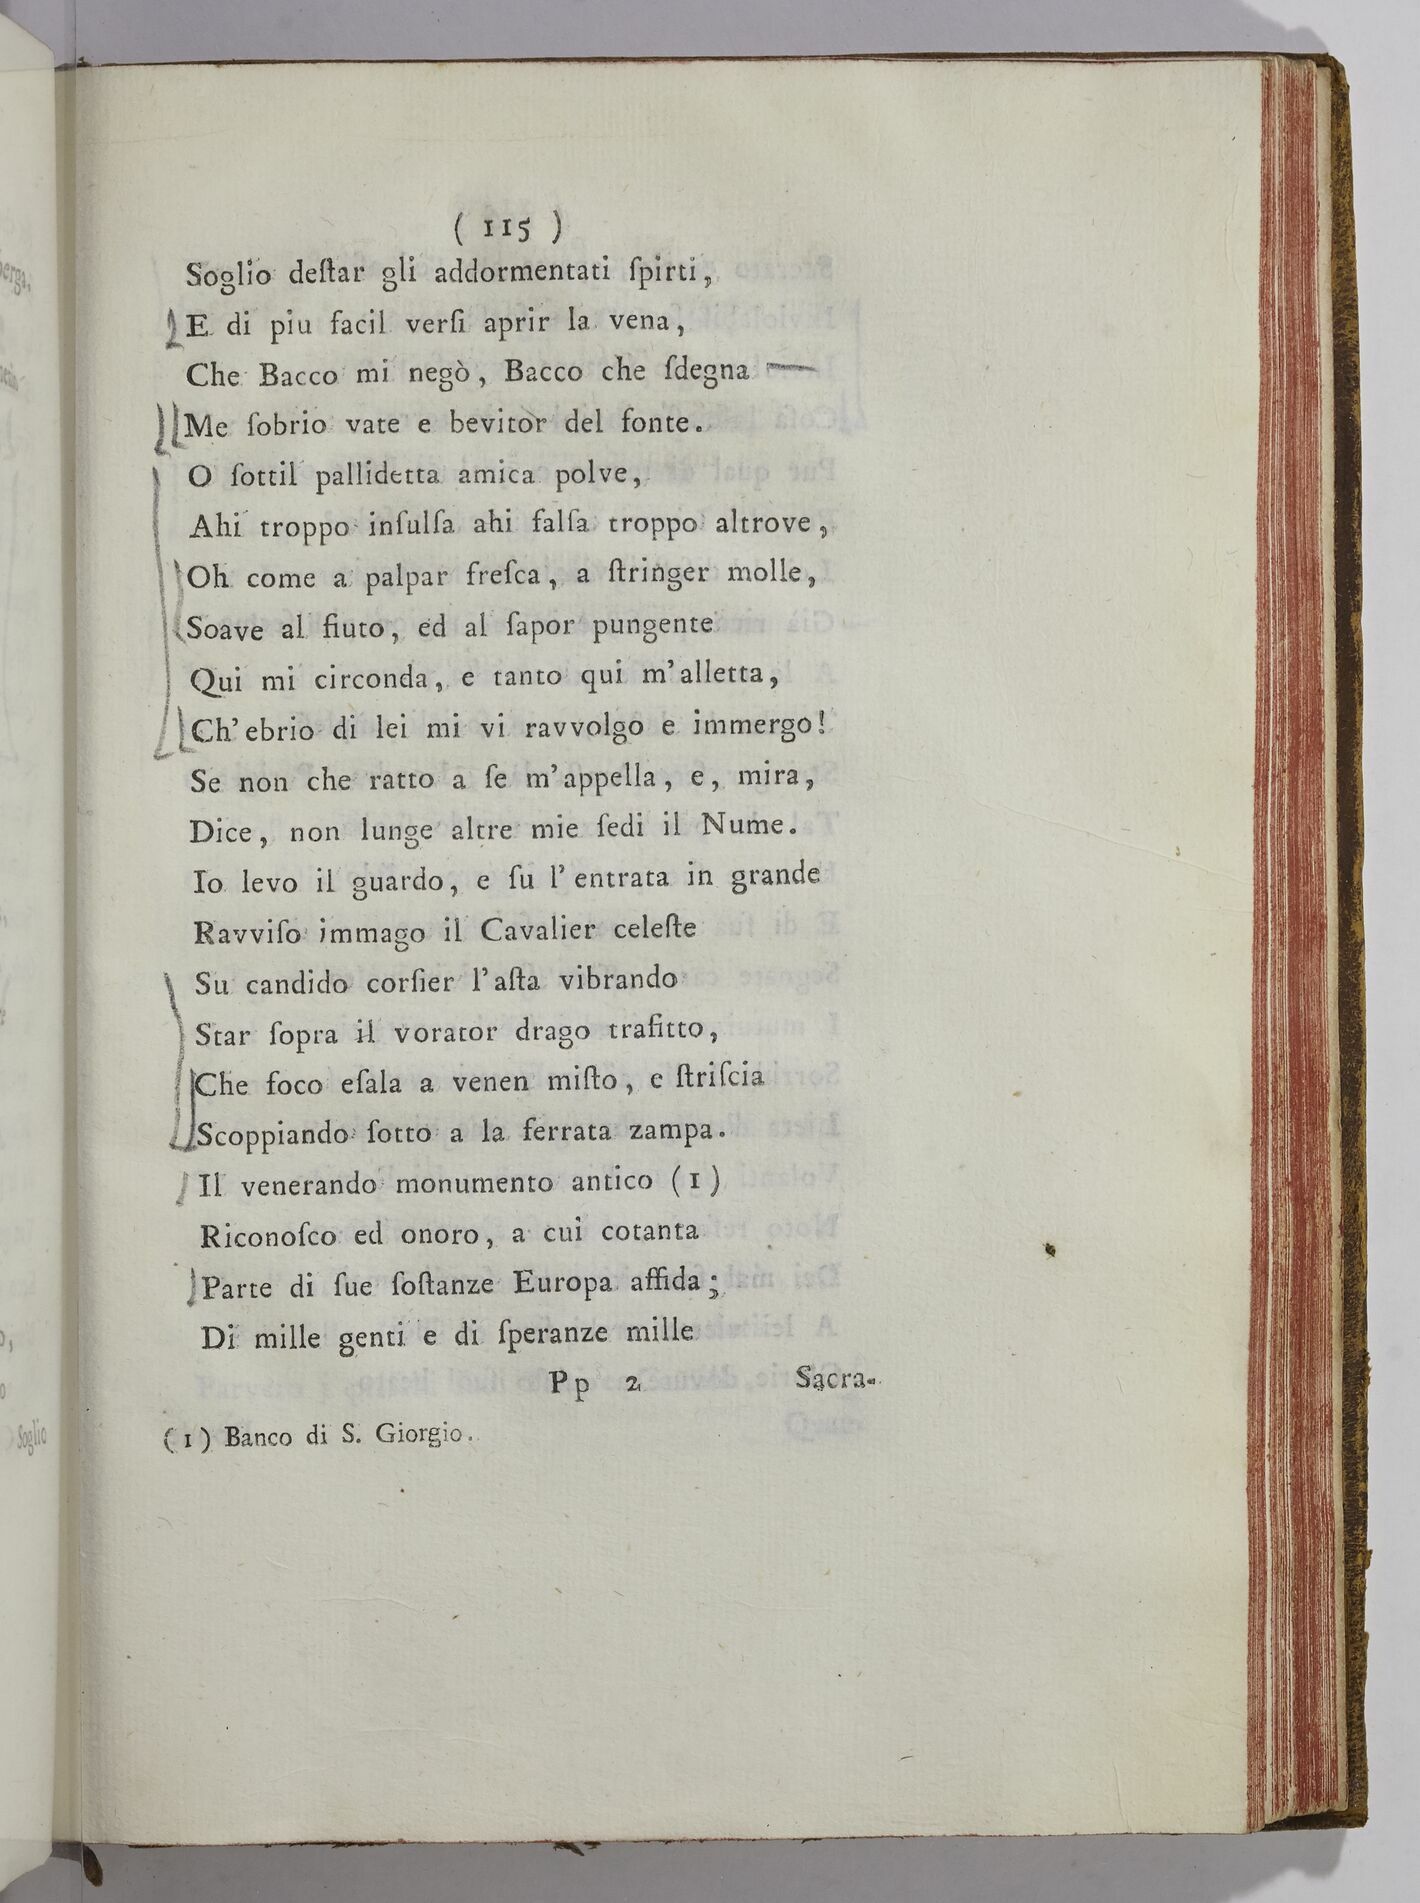 ( 115 )
Soglio deſtar gli addormentati ſpirti,
E di piu facil verſi aprir la vena,
Che Bacco mi negò, Bacco che ſdegna
Me ſobrio vate e bevitor del fonte.
O ſottil pallidetta amica polve,
Ahi troppo inſulſa ahi falſa troppo altrove,
Oh come a palpar freſca, a ſtringer molle,
Soave al fiuto, ed al ſapor pungente
Qui mi circonda, e tanto qui m'alletta,
Ch'ebrio di lei mi vi ravvolgo e immergo!
Se non che ratto a ſe m'appella, e, mira,
Dice, non lunge altre mie ſedi il Nume.
Io levo il guardo, e ſu l'entrata in grande
Ravviſo immago il Cavalier celeſte
Su candido corſier l'aſta vibrando
Star ſopra il vorator drago trafitto,
Che foco eſala a venen miſto, e ſtriſcia
Scoppiando ſotto a la ferrata zampa.
Il venerando monumento antico (1)
Riconoſco ed onoro, a cui cotanta
Parte di ſue ſoſtanze Europa affida;
Di mille genti e di ſperanze mille
Pp 2 Sacra-
(1) Banco di S. Giorgio.
Soglio